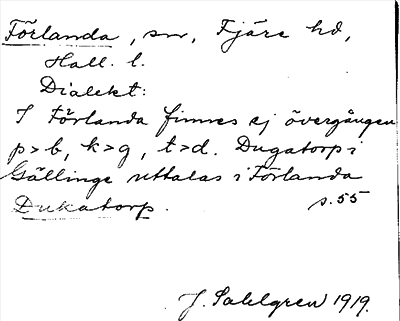 Förlanda, sn, Fjäre hd,
Hall. l.
Dialekt:
I Förlanda finnes ej övergången
p>b, k>g, t>d. Dugatorp i
Gällinge uttalas i Förlanda
Dukatorp. s. 55
J. Sahlgren 1919.